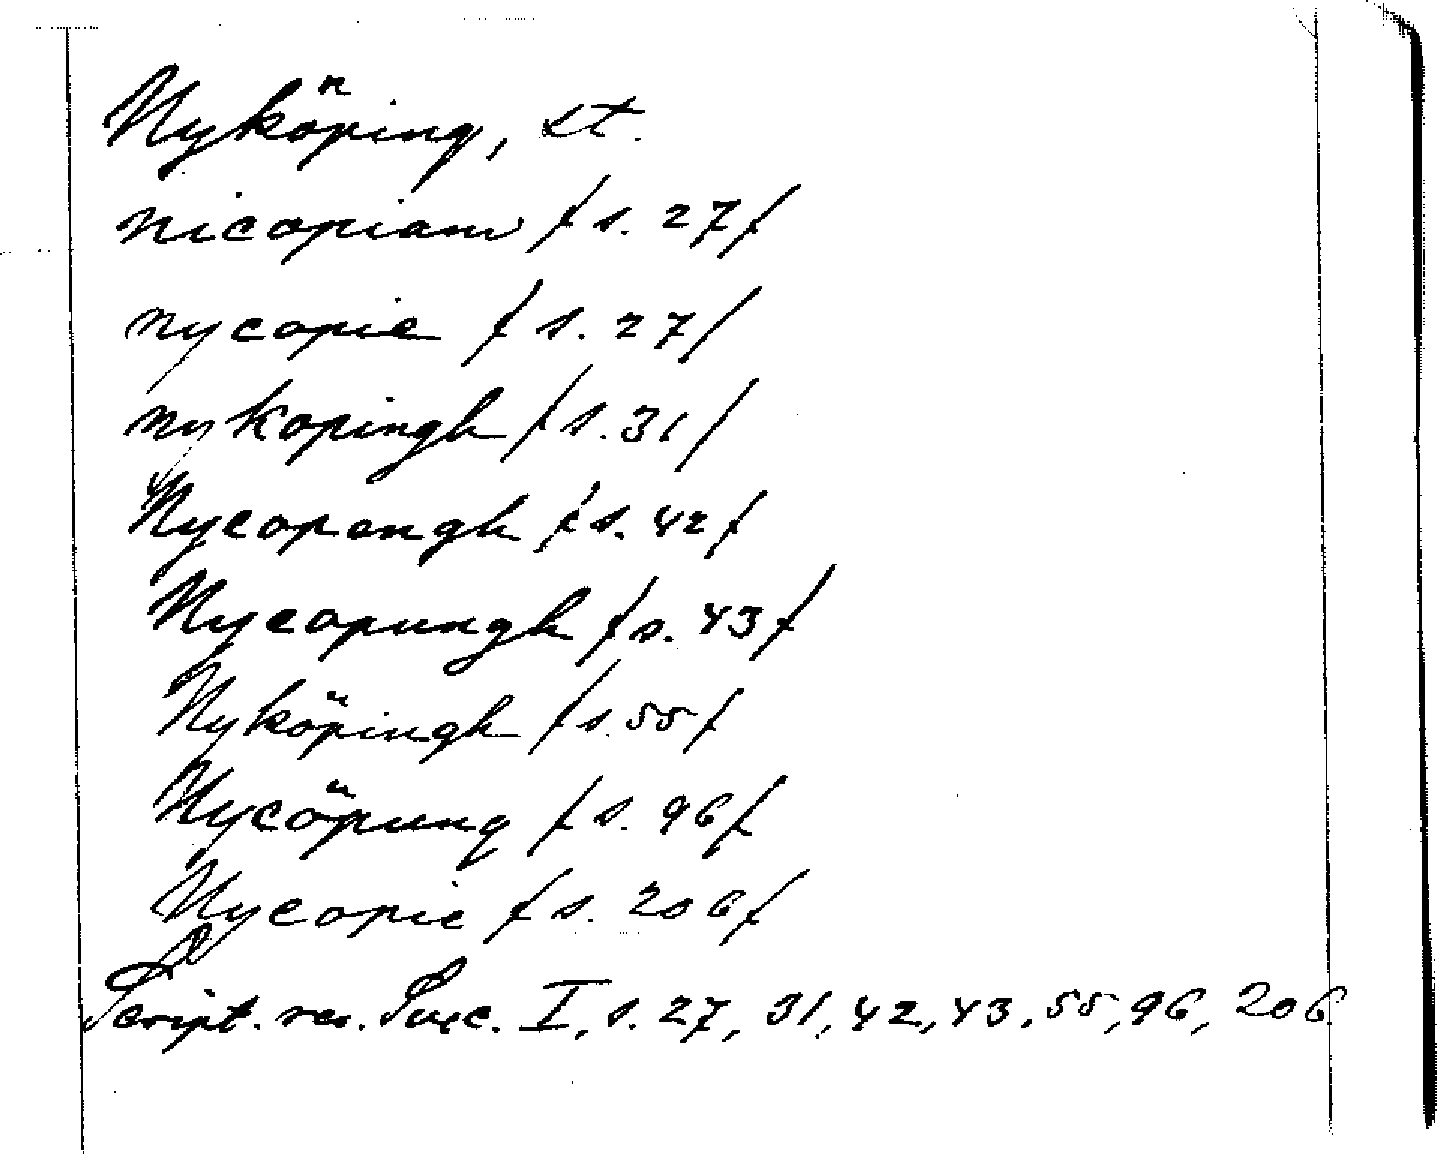 Nyköping, st.
nicopiam / s. 27 /
nycopie / s. 27 /
nykopingh / s. 31 /
Nycopengh / s. 42 /
Nycopungh / s. 43 /
Nyköpingh / s. 55 /
Nycöpung / s. 96 /
Nycopie / s. 206 /
Script. rer. Suec. I, s. 27, 31, 42, 43, 55, 96, 206